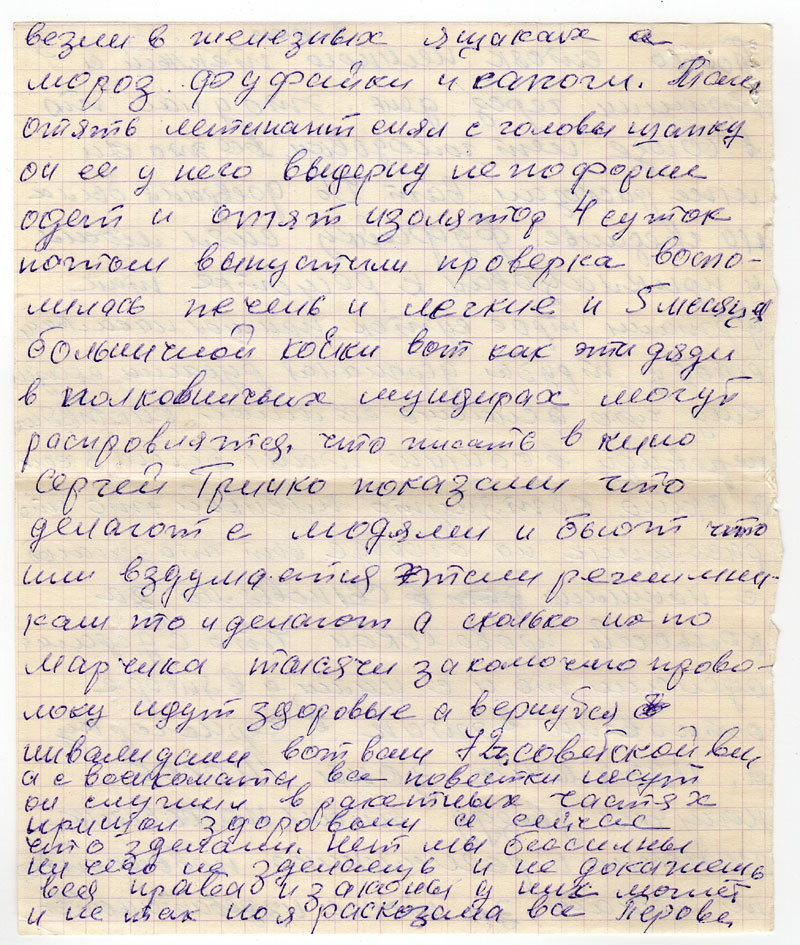 везли в железных ящаках а
мороз. фуфайки и сапоги. Там
опять летинант снял с головы шапку
он ее у него выдернул не по форме
одет и опят изолятор 4 суток
потом выпустили проверка воспо-
милась печень и легкие и 5 месяца
больничной койки вот как эти дяди
в полковничьих мундирах могут
распровлятся, что писать в кино
Сергей Гринко показали что
делагот с людями и бьют что
им вздумается этим режимни-
кам то и делагот а сколько их по
тысячи за колючию прово-
локу идут здоровые а вернутся
инвалидами вот вам 72 советской вы
а с воэнкомата все повестки несут
он служил в ракетных частях
пришол здоровым а сейчас
что зделали. Нет мы бессилны
ни чего не зделаешь и не докажешь
вся права и законы у них может
и не так но я расказала все Перова